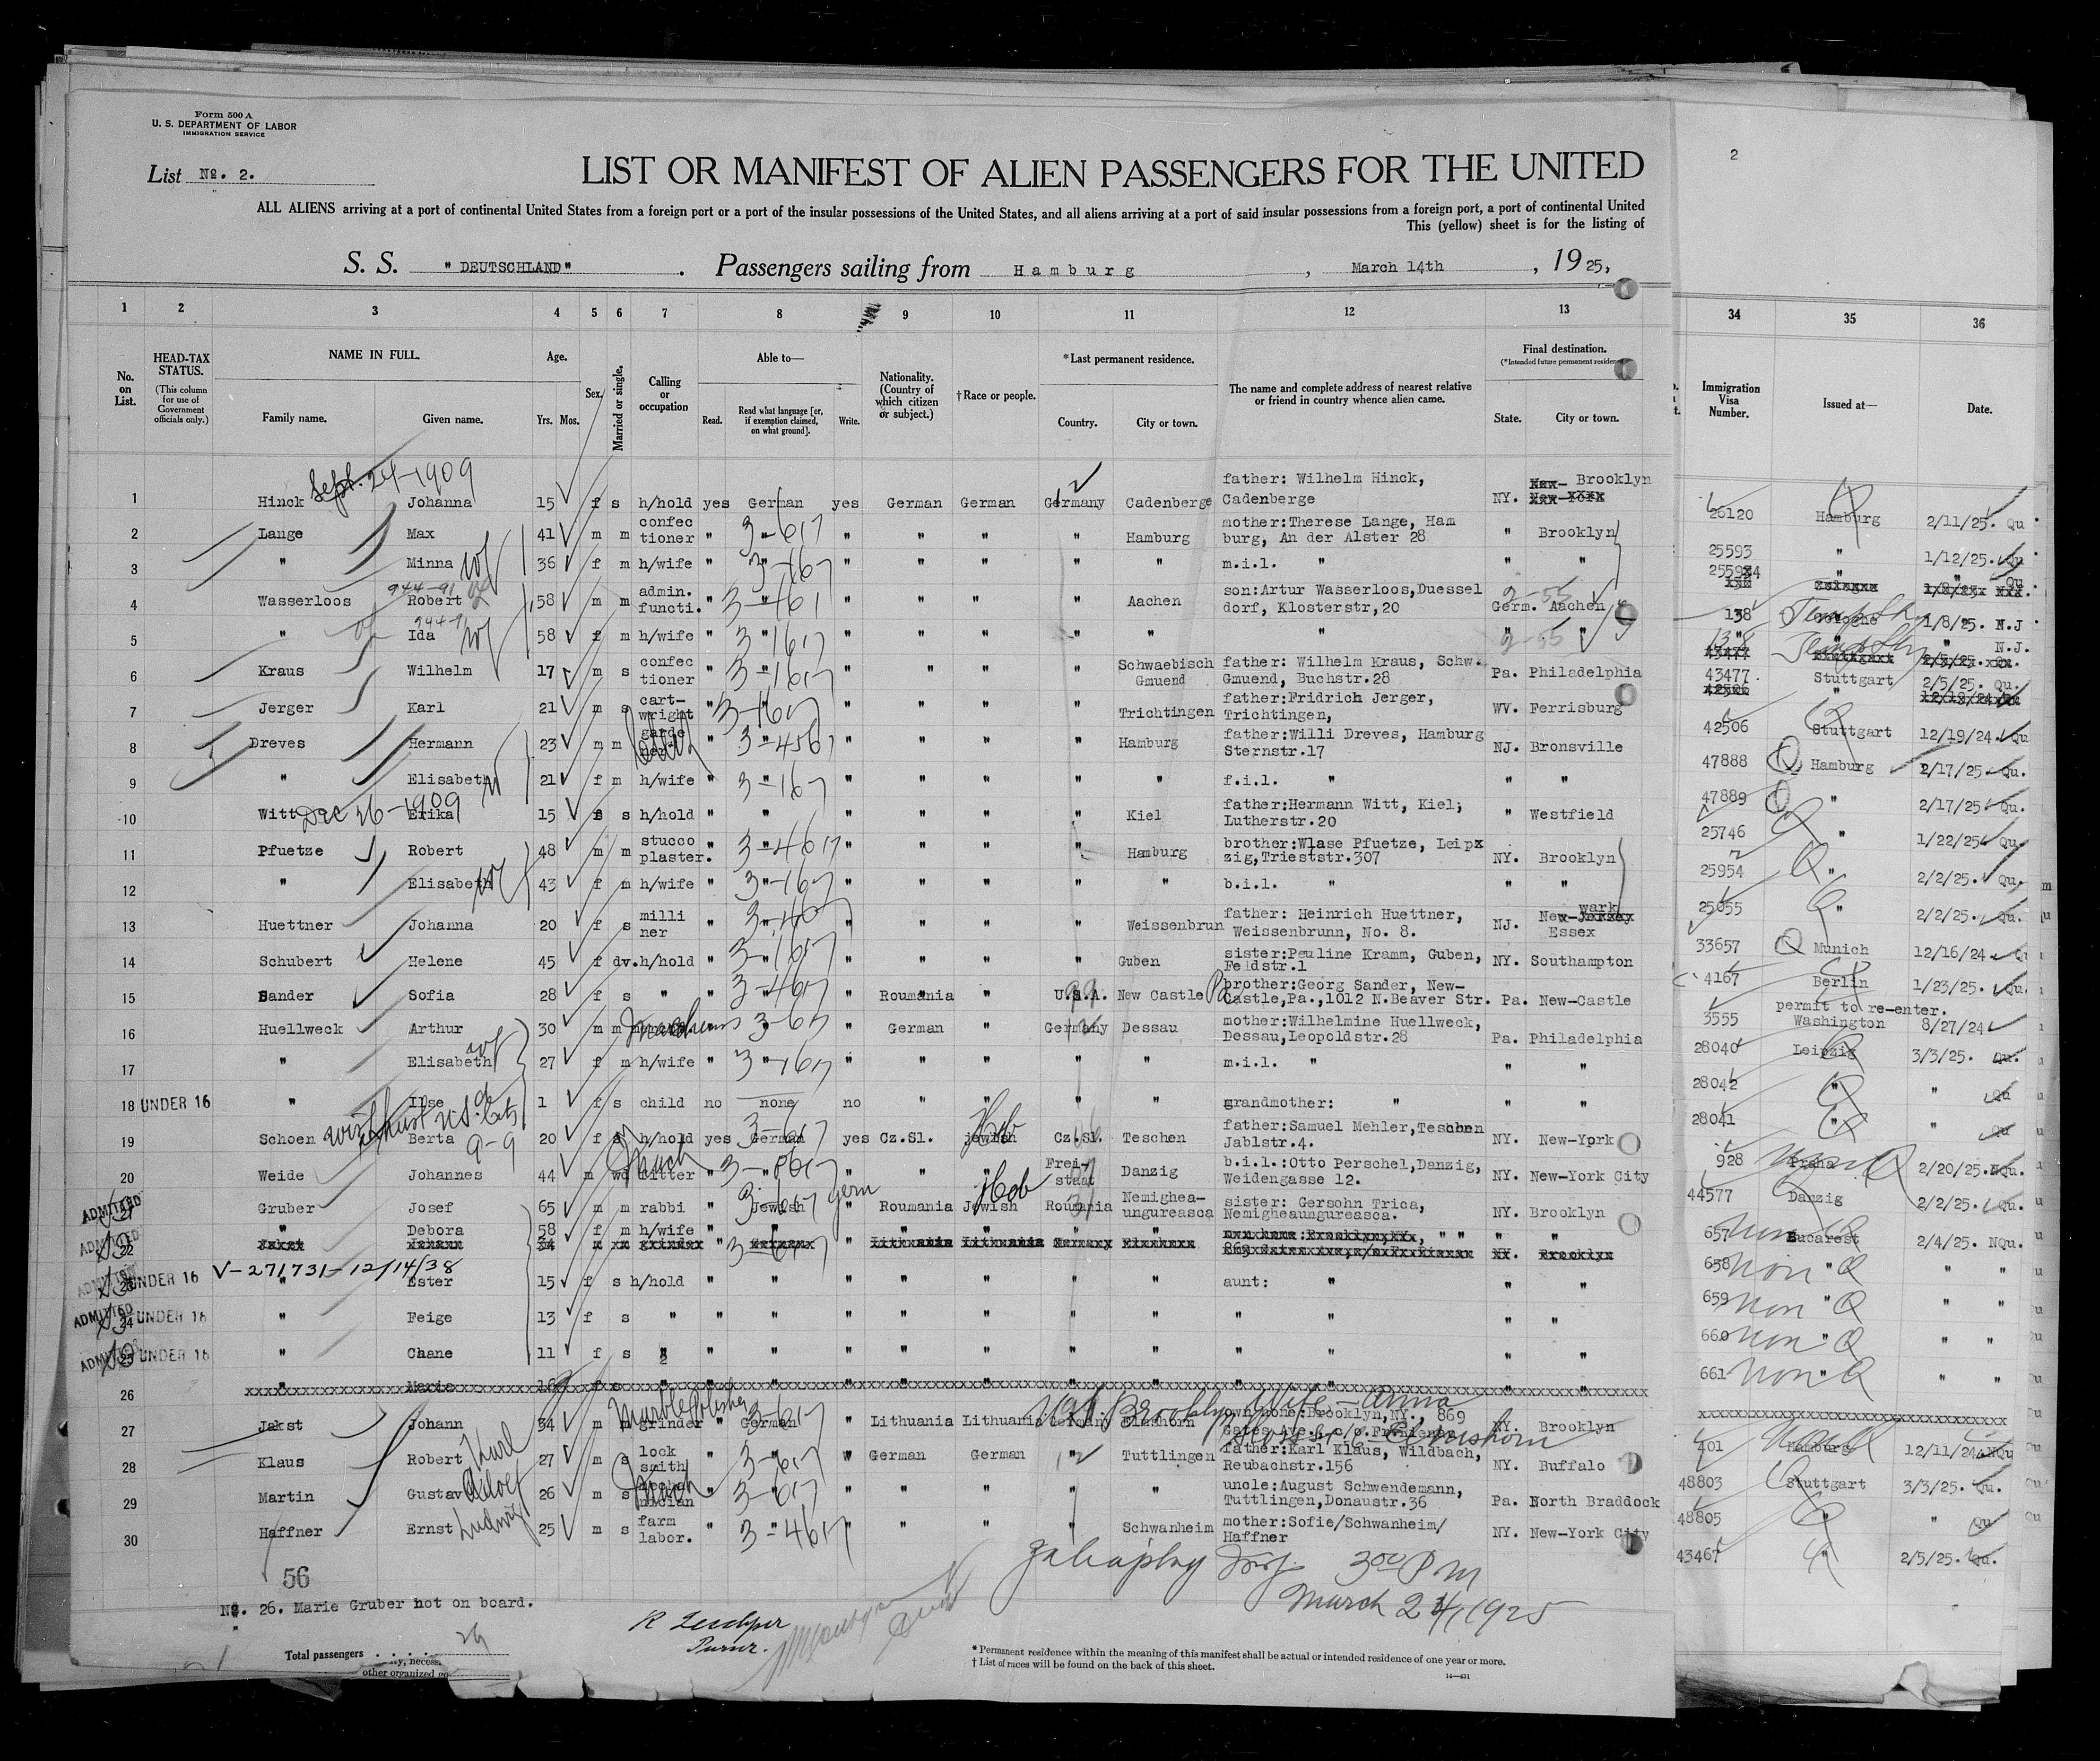 Form 500 A
U. S. DEPARTMENT OF LABOR
IMMIGRATION SERVICE
List No. 2.
2
LIST OR MANIFEST OF ALIEN PASSENGERS FOR THE UNITED
ALL ALIENS arriving at a port of continental United States from a foreign port or a port of the insular possessions of the United States, and all aliens arriving at a port of said insular possessions from a foreign port, a port of continental United
This (yellow) sheet is for the listing of
S. S. "DEUTSCHLAND" . Passengers sailing from Hamburg , March 14th , 1925,
1 2 3 4 5 6 7 8 9 10 11 12 13 34 35 36
No. on List. HEAD-TAX STATUS. (This column for use of Government officials only.) NAME IN FULL. Family name. Given name. Age. Yrs. Mos. Sex. Married or single. Calling or occupation Able to— Read. Read what language [or, if exemption claimed, on what ground]. Write. Nationality. (Country of which citizen or subject.) †Race or people. *Last permanent residence. Country. City or town. The name and complete address of nearest relative or friend in country whence alien came. Final destination. (*Intended future permanent residence) State. City or town. Immigration Visa Number. Issued at— Date.
Sept. 24-1909
1 Hinck Johanna 15 f s h/hold yes German yes German German Germany Cadenberge father: Wilhelm Hinck, Cadenberge NY. Brooklyn 26120 Hamburg 2/11/25. Qu
2 Lange Max 41 m m confec tioner " 3-617 " " " " Hamburg mother:Therese Lange, Ham burg, An der Alster 28 " Brooklyn 25593 " 1/12/25. Qu
3 " Minna wf 36 f m h/wife " 3-167 " " " " " m.i.l. " " " 25594 " " Qu
944-91
4 Wasserloos Robert 58 m m admin. functi. " 3-461 " " " " Aachen son:Artur Wasserloos,Duessel dorf, Klosterstr,20 Germ. Aachen 2-55 138 Cologne 1/8/25. N.J
944-91
5 " Ida wf 58 f m h/wife " 3-1617 " " " " " " " 2-55 " 138 " " N.J.
6 Kraus Wilhelm 17 m s confec tioner " 3-1617 " " " " Schwaebisch Gmuend father: Wilhelm Kraus, Schw. Gmuend, Buchstr.28 Pa. Philadelphia 43477 Stuttgart 2/5/25. Qu.
7 Jerger Karl 21 m s cart- wright " 3-1617 " " " " Trichtingen father:Fridrich Jerger, Trichtingen, WV. Ferrisburg 42506 Stuttgart 12/19/24. Qu
8 Dreves Hermann 23 m m garde ner " 3-4567 " " " " Hamburg father:Willi Dreves, Hamburg Sternstr.17 NJ. Bronsville 47888 Q Hamburg 2/17/25 Qu.
9 " Elisabeth w 21 f m h/wife " 3-167 " " " " " f.i.l. " " " 47889 Q " 2/17/25 Qu.
Dec 26-1909
10 Witt Erika 15 f s h/hold " " " " " " Kiel father:Hermann Witt, Kiel, Lutherstr.20 " Westfield 25746 " 1/22/25 Qu.
11 Pfuetze Robert 48 m m stucco plaster. " 3-4617 " " " " Hamburg brother:Wlase Pfuetze, Leipx zig,Trieststr.307 NY. Brooklyn 25954 Q " 2/2/25. Qu.
12 " Elisabeth wf 43 f m h/wife " 3-167 " " " " " b.i.l. " " " 25055 " 2/2/25. Qu.
13 Huettner Johanna 20 f s milli ner " 3-467 " " " " Weissenbrun father: Heinrich Huettner, Weissenbrunn, No. 8. NJ. Newark Essex 33657 Q Munich 12/16/24
14 Schubert Helene 45 f dv. h/hold " 3-1617 " " " " Guben sister:Pauline Kramm, Guben, Feldstr.1 NY. Southampton 4167 Berlin 1/23/25. Qu.
15 Sander Sofia 28 f s " " 3-467 " Roumania " U.S.A. New Castle Pa brother:Georg Sander, New- Castle,Pa.,1012 N.Beaver Str. Pa. New-Castle 3555 permit to re-enter. Washington 8/27/24
16 Huellweck Arthur 30 m m " 3-617 " German " Germany Dessau mother:Wilhelmine Huellweck, Dessau,Leopoldstr.28 Pa. Philadelphia 28040 Leipzig 3/3/25. Qu.
17 " Elisabeth wf 27 f m h/wife " 3-1617 " " " " " m.i.l. " " " 28042 " " Qu
18 UNDER 16 " Ilse 1 f s child no none no " " " " grandmother: " " " 28041 " " Qu
19 Schoen Berta 9-9 20 f s h/hold yes German yes Cz.Sl. jewish Heb Cz.Sl. Teschen father:Samuel Mehler,Teschen Jablstr.4. NY. New-York 928 Praha 2/20/25. NQu.
20 Weide Johannes 44 m wd fitter " " " " " Frei- staat Danzig b.i.l.:Otto Perschel,Danzig, Weidengasse 12. NY. New-York City 44577 Danzig 2/2/25. Qu.
ADMITTED 21 Gruber Josef 65 m m rabbi " Jewish " Roumania Jewish Heb Roumania Nemighea- ungureasca sister: Gersohn Trica, Nemigheaungureasca. NY. Brooklyn 657 Non Q Bucarest 2/4/25. NQu.
ADMITTED 22 " Debora 58 f m h/wife " " " " " " " " " " " 658 Non Q " " "
V-271731-12/14/38
23 UNDER 16 " Ester 15 f s h/hold " " " " " " " aunt: " " " 659 Non Q " " "
ADMITTED 24 UNDER 16 " Feige 13 f s " " " " " " " " " " " " 660 Non Q " " "
ADMITTED 25 UNDER 16 " Chane 11 f s " " " " " " " " " " " " 661 Non Q " " "
26 " Marie 16 f s
27 Jakst Johann 34 m m grinder Marble Polisher " German " Lithuania Lithuania Germany Elmshorn own home:Brooklyn,NY., 869 Gates Ave., c/o. NY. Brooklyn 401 Hamburg 12/11/24 NQu
Wife - Anna
Elmshorn
28 Klaus Robert Karl 27 m s lock smith " 3-617 " German German " Tuttlingen father:Karl Klaus, Wildbach, Reubachstr.156 NY. Buffalo 48803 Q Stuttgart 3/3/25. Qu.
29 Martin Gustav Adolf 26 m s mecha nician " 3-617 " " " " " uncle:August Schwendemann, Tuttlingen,Donaustr.36 Pa. North Braddock 48805 " " Qu
30 Haffner Ernst Ludwig 25 m s farm labor. " 3-4617 " " " " Schwanheim mother:Sofie/Schwanheim/ Haffner NY. New-York City 43467 " 2/5/25. Qu.
3 00 P M
March 24/1925
56
No. 26. Marie Gruber not on board.
Purser.
Total passengers . . . . 29
other organized go
* Permanent residence within the meaning of this manifest shall be actual or intended residence of one year or more.
† List of races will be found on the back of this sheet.
14—431